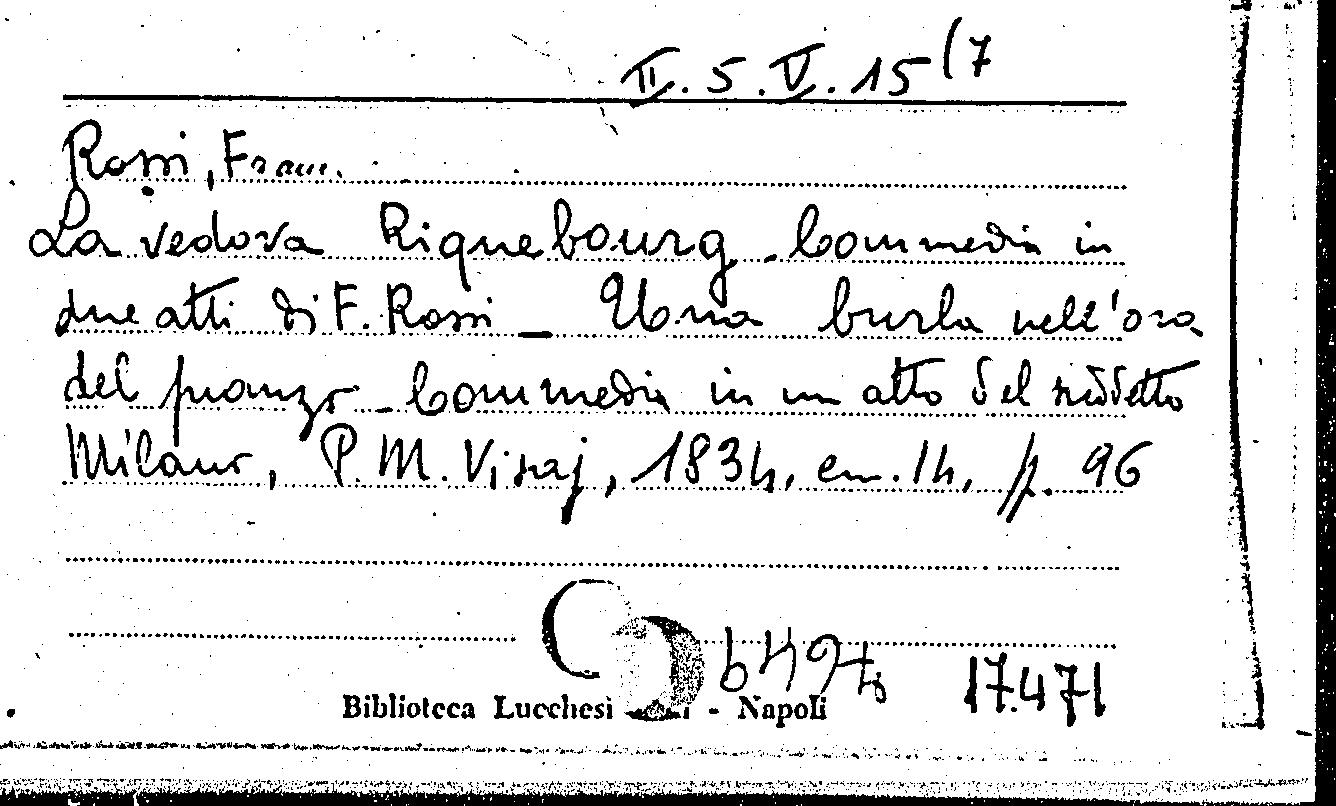 II.5.V.15(7
Rossi, Fran.
La vedova Riquebourg - Commedia in
due atti di F. Rossi - Una burla nell'ora
del pranzo - Commedia in un atto del suddetto
Milano, P. M. Visaj, 1834, cm. 14, p. 96
Biblioteca Lucchesi - Napoli
17.471